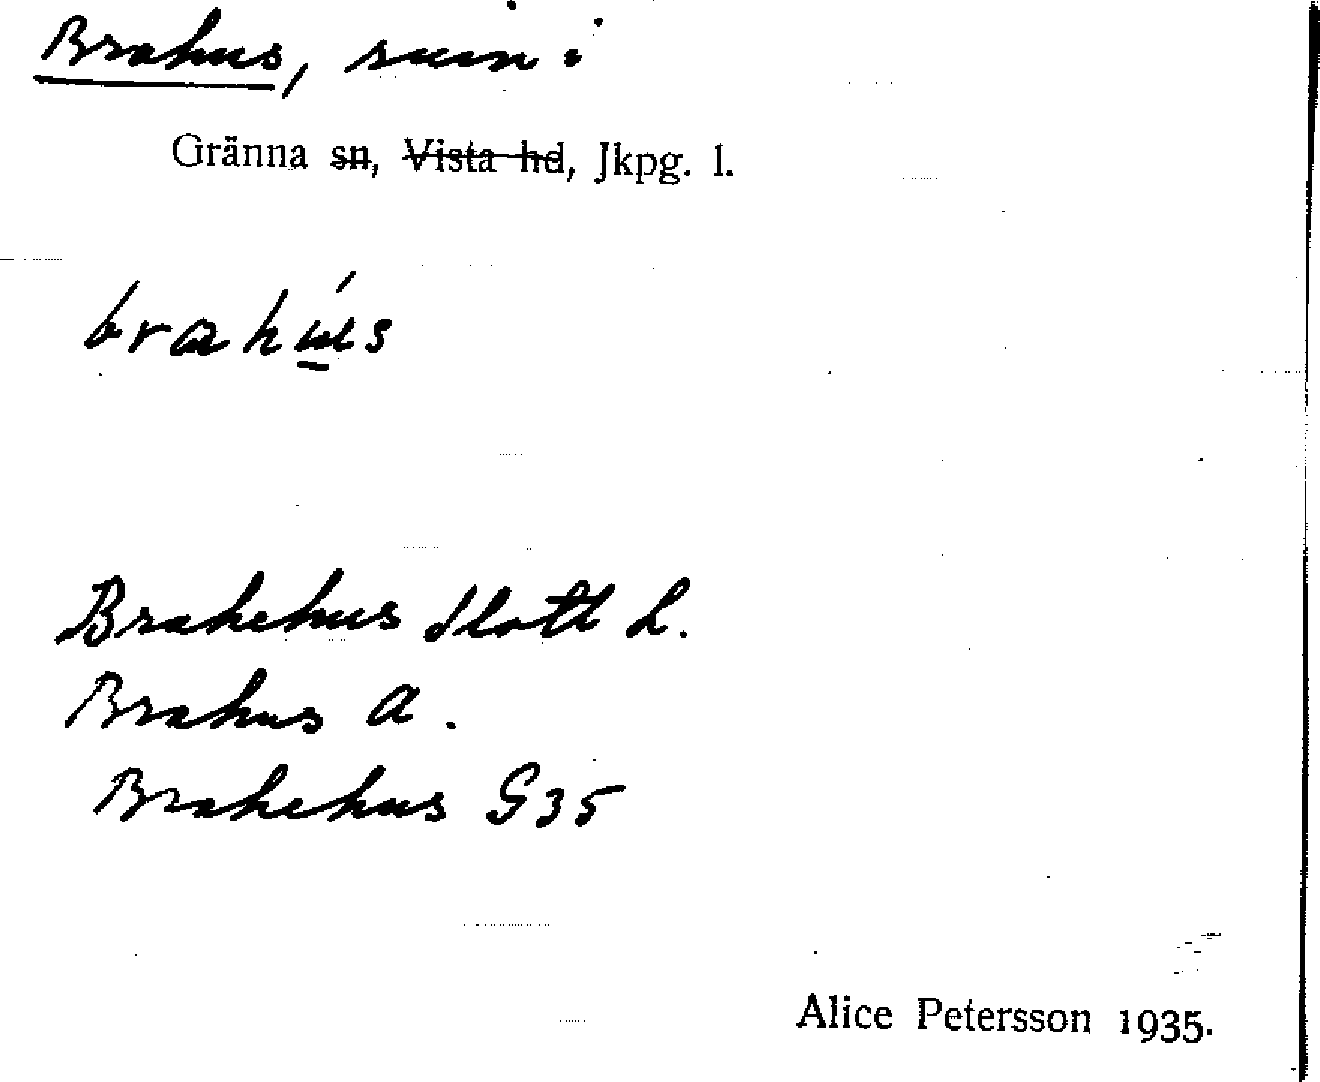 Brahus, ruin i
Gränna sn, Vista hd, Jkpg. l.
brahú̲s
Brahehus slott L.
Brahus A.
Brahehus G35
Alice Petersson 1935.